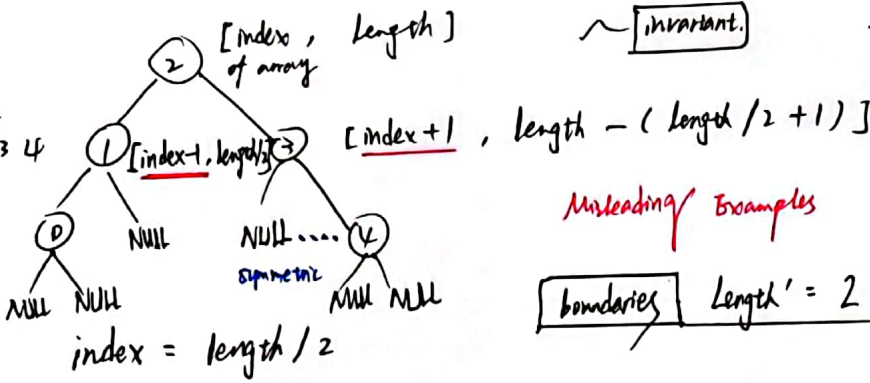 [index, Length]
of array
invariant.
2
3 4
1
[index-1, length/2]
3
[index+1, length - (length/2+1)]
Misleading Examples
0
NULL
NULL....
4
symmetric
NULL NULL
NULL NULL
boundaries Length' = 2
index = length/2